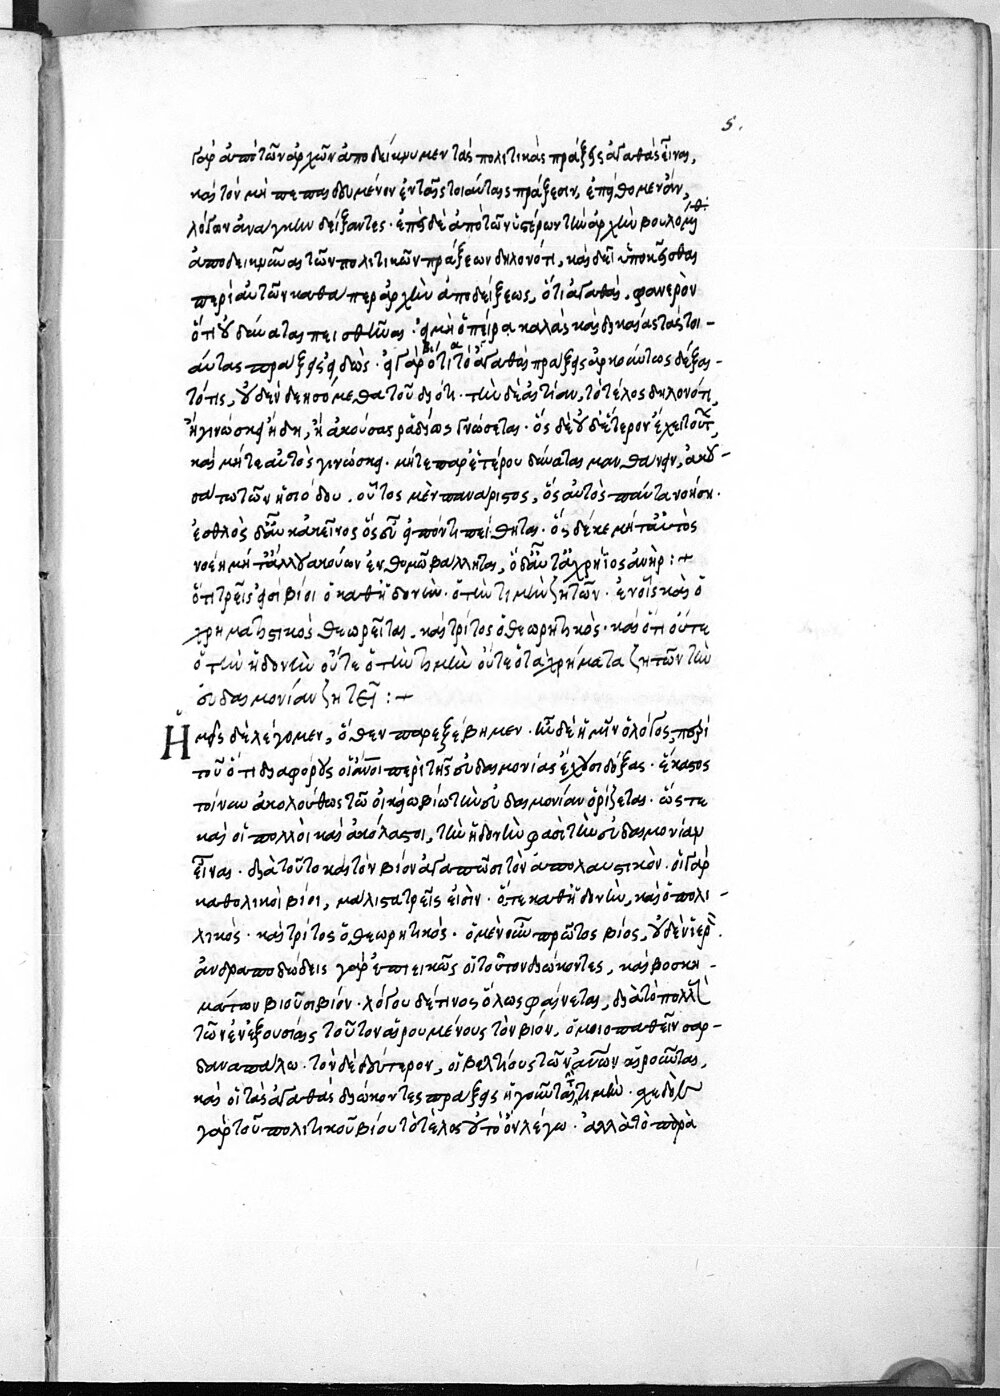 5.
γὰρ ἀπὸ τῶν ἀρχῶν ἀποδείκνυμεν τὰς πολιτικὰς πράξεις ἀγαθὰς εἶναι,
καὶ τὸν μὴ πεπαιδευμένον ἐν ταῖς τοιαύταις πράξεσιν, ἐπείθομεν ἂν,
λόγων ἀνάγκην δείξαντες · ἐπεὶ δὲ ἀπὸ τῶν ὑστέρων τὴν ἀρχὴν βουλόμεθα
ἀποδεικνῦναι τῶν πολιτικῶν πράξεων δηλονότι, καὶ δεῖ ὑποκεῖσθαι
περὶ αὐτῶν καθαπερ ἀρχὴν ἀποδείξεως, ὅτι ἀγαθαὶ, φανερὸν
ὅτι οὐ δύναται πεισθῆναι · ὁ μὴ ὁ πείρα καλὰς καὶ δικαίας τὰς τοι-
αύτας πράξεις εἰδώς · εἰ γὰρ ὅτι τὸ ἀγαθαὶ πράξεις ἀρκούντως δέξαι-
τό τις, οὐδὲν δεησόμεθα τοῦ διότι · τὴν δὲ αἰτίαν, τὸ τέλος δηλονότι,
ἢ γινώσκει ἤδη, ἢ ἀκούσας ῥαδίως γνώσεται · ὃς δὲ οὐδέτερον ἔχει τούτων,
καὶ μήτε αὐτὸς γινώσκει · μήτε παρ' ἑτέρου δύναται μανθάνειν, ἀκου-
σάτω τῶν ἡσιόδου · οὗτος μὲν πανάριστος, ὃς αὐτὸς πάντα νοήσῃ ·
ἐσθλὸς δ' αὖ κἀκεῖνος ὃς εὖ εἰπόντι πείθηται · ὃς δέ κε μήτ' αὐτὸς
νοέῃ μήτ' ἄλλου ἀκούων ἐν θυμῷ βάλληται, ὁ δ' αὖτ' ἀχρήϊος ἀνήρ : +
ὅτι τρεῖς εἰσὶ βίοι ὁ καθ' ἡδονὴν · ὁ τὴν τιμὴν ζητῶν · ἐν οἷς καὶ ὁ
χρηματιστικὸς θεωρεῖται · καὶ τρίτος ὁ θεωρητικός · καὶ ὅτι οὔτε
ὁ τὴν ἡδονὴν οὔτε ὁ τὴν τιμὴν οὔτε ὁ τὰ χρήματα ζητῶν τὴν
εὐδαιμονίαν ζητεῖ : +
Ἡμεῖς δὲ λέγομεν, ὅθεν παρεξέβημεν · ἦν δὲ ἡμῖν ὁ λόγος, περὶ
τοῦ ὅτι διαφόρους οἱ ἄνοι περὶ τῆς εὐδαιμονίας ἔχουσι δόξας · ἕκαστος
τοίνυν ἀκολούθως τῷ οἰκείῳ βίῳ τὴν εὐδαιμονίαν ὁρίζεται · ὥστε
καὶ οἱ πολλοὶ καὶ ἀκόλαστοι, τὴν ἡδονὴν φασὶ τὴν εὐδαιμονίαν
εἶναι · διὰ τοῦτο καὶ τὸν βίον ἀγαπῶσι τὸν ἀπολαυστικόν · οἱ γὰρ
καθολικοὶ βίοι, μάλιστα τρεῖς εἰσίν · ὅ τε καθ' ἡδονὴν, καὶ ὁ πολι-
τικός · καὶ τρίτος ὁ θεωρητικός · ὁ μὲν οὖν πρῶτος βίος, οὐδὲν
ἀνδραποδώδεις γὰρ ἐπιεικῶς οἱ τοῦτον διώκοντες, καὶ βοσκη-
μάτων βιοῦσι βίον · λόγου δέ τινος ὅλως φαίνεται, διὰ τὸ πολλοὺς
τῶν ἐν ἐξουσίαις τοῦτον αἱρουμένους τὸν βίον, ὁμοιοπαθεῖν σαρ-
δαναπάλω · τὸν δὲ δεύτερον, οἱ βελτίους τῶν ἀνων αἱροῦνται,
καὶ οἱ τὰς ἀγαθὰς διώκοντες πράξεις ἡγοῦνται τιμὴν · σχεδὸν
γὰρ τοῦ πολιτικοῦ βίου τὸ τέλος τὸ ὂν λέγω · ἀλλὰ τὸ παρὰ